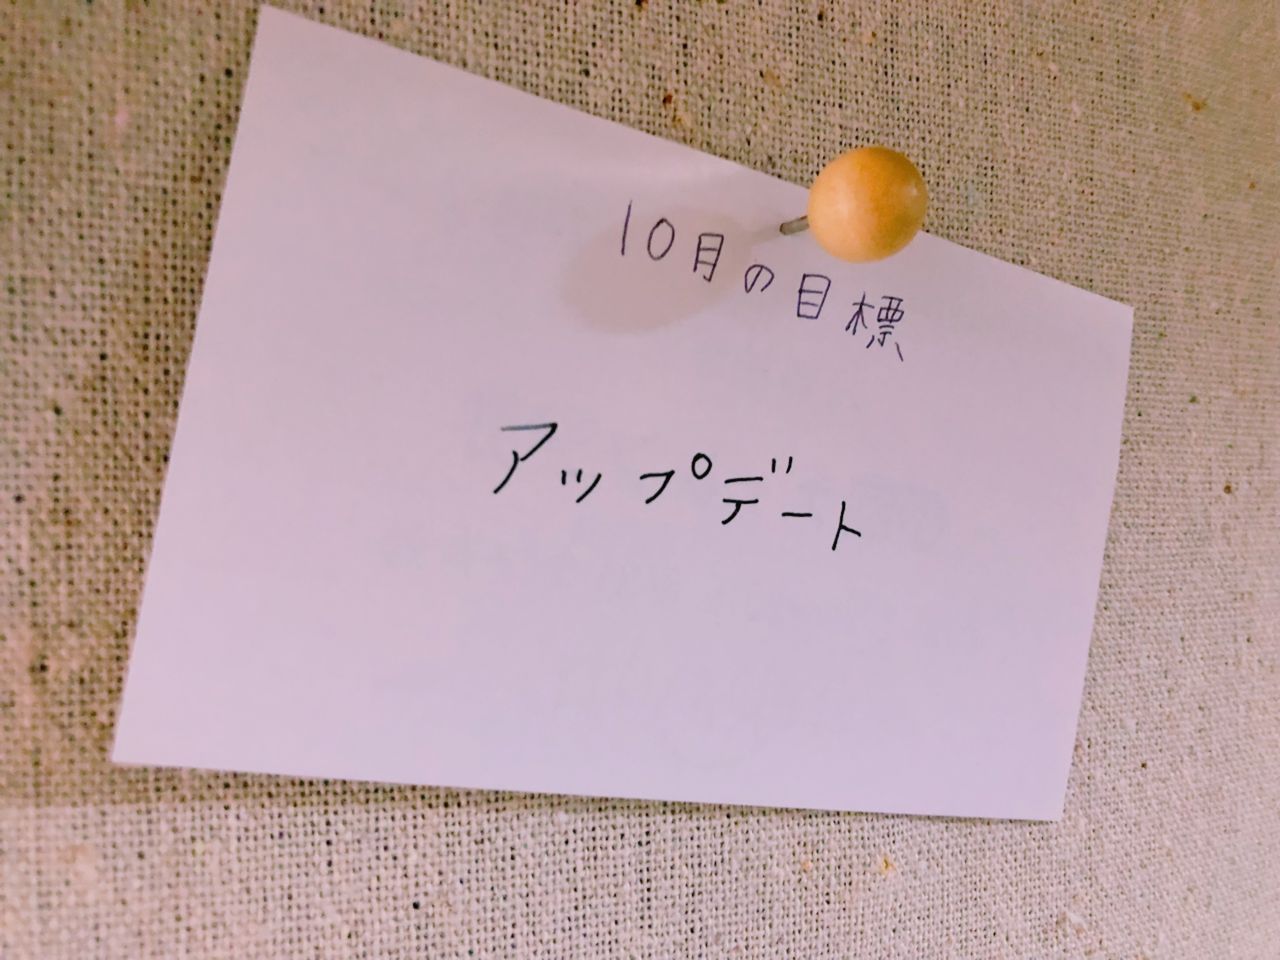 10月の目標
アップデート